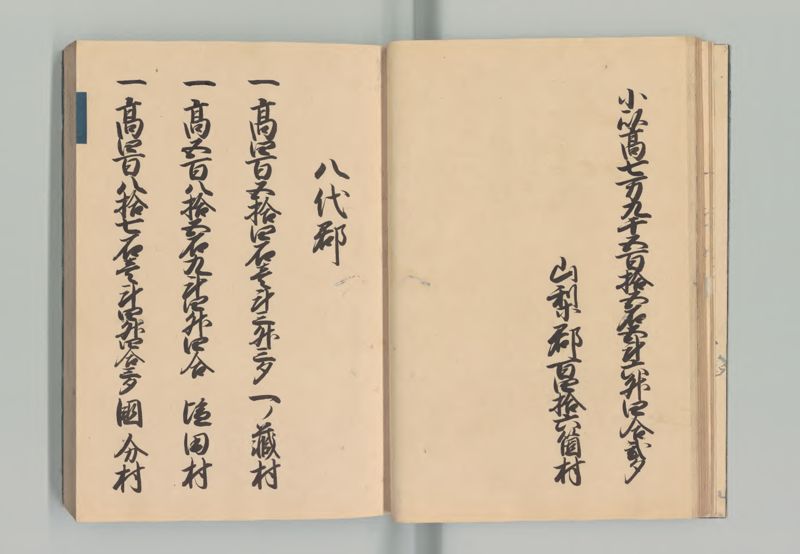 小以高七万九千五百拾六石壱斗六升四合弐夕
山梨郡百四拾六箇村
八代郡
一高四百五拾四石壱斗三升三夕 一ノ蔵村
一高五百八拾六石九斗四升四合 塩田村
一高四百八拾七石壱斗四升四合三夕 國分村